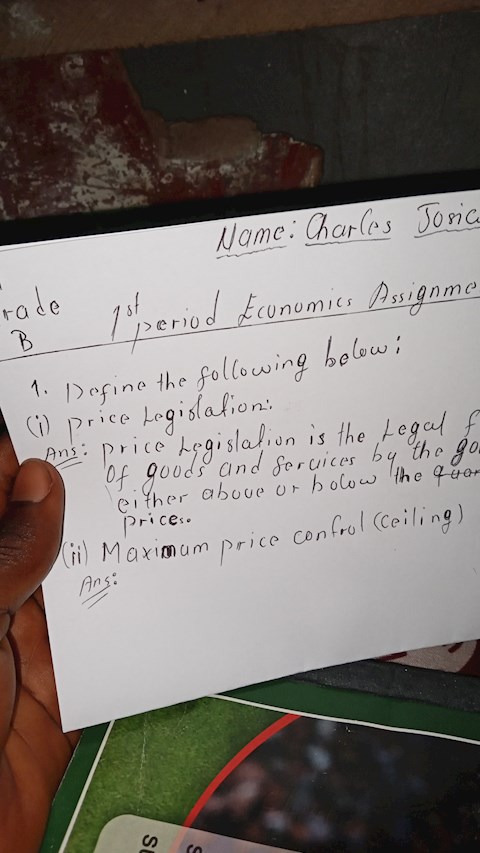 Name: Charles
rade
B
1st period Economics Assignme
1. Define the following below:
(i) Price Legislation:
Ans: Price Legislation is the Legal f
of goods and Services by the go
either above or bolow the
prices.
(ii) Maximum price control (ceiling)
Ans: